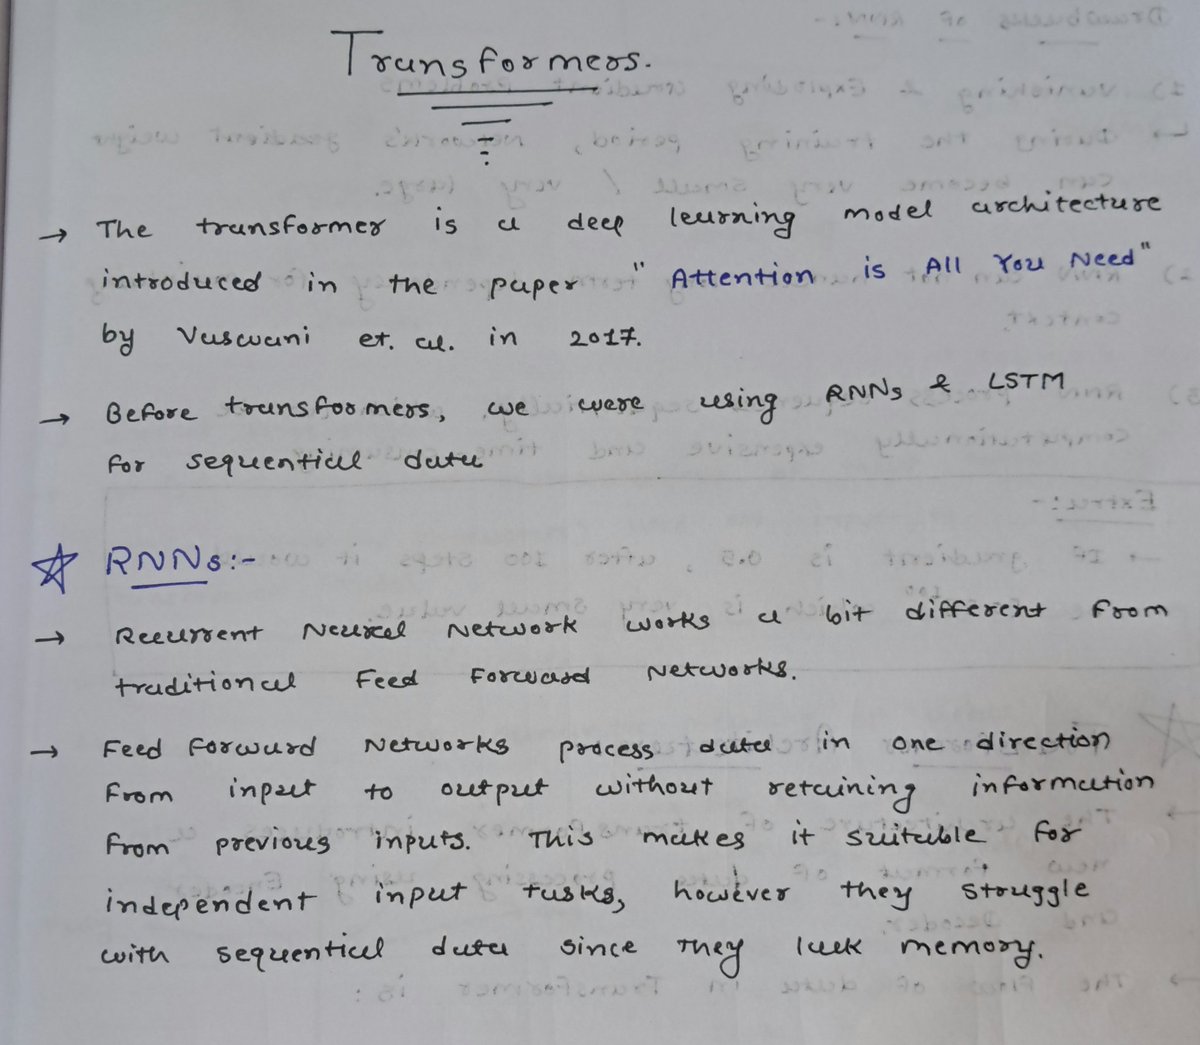 Transformers.
→ The transformer is a deep learning model architecture
introduced in the paper "Attention is All You Need"
by Vaswani et. al. in 2017.
→ Before transformers, we were using RNNs & LSTM
for sequential data
☆ RNNs:-
→ Recurrent Neural Network works a bit different from
traditional Feed Forward Networks.
→ Feed forward Networks process data in one direction
from input to output without retaining information
from previous inputs. This makes it suitable for
independent input tasks, however they struggle
with sequential data since they lack memory.